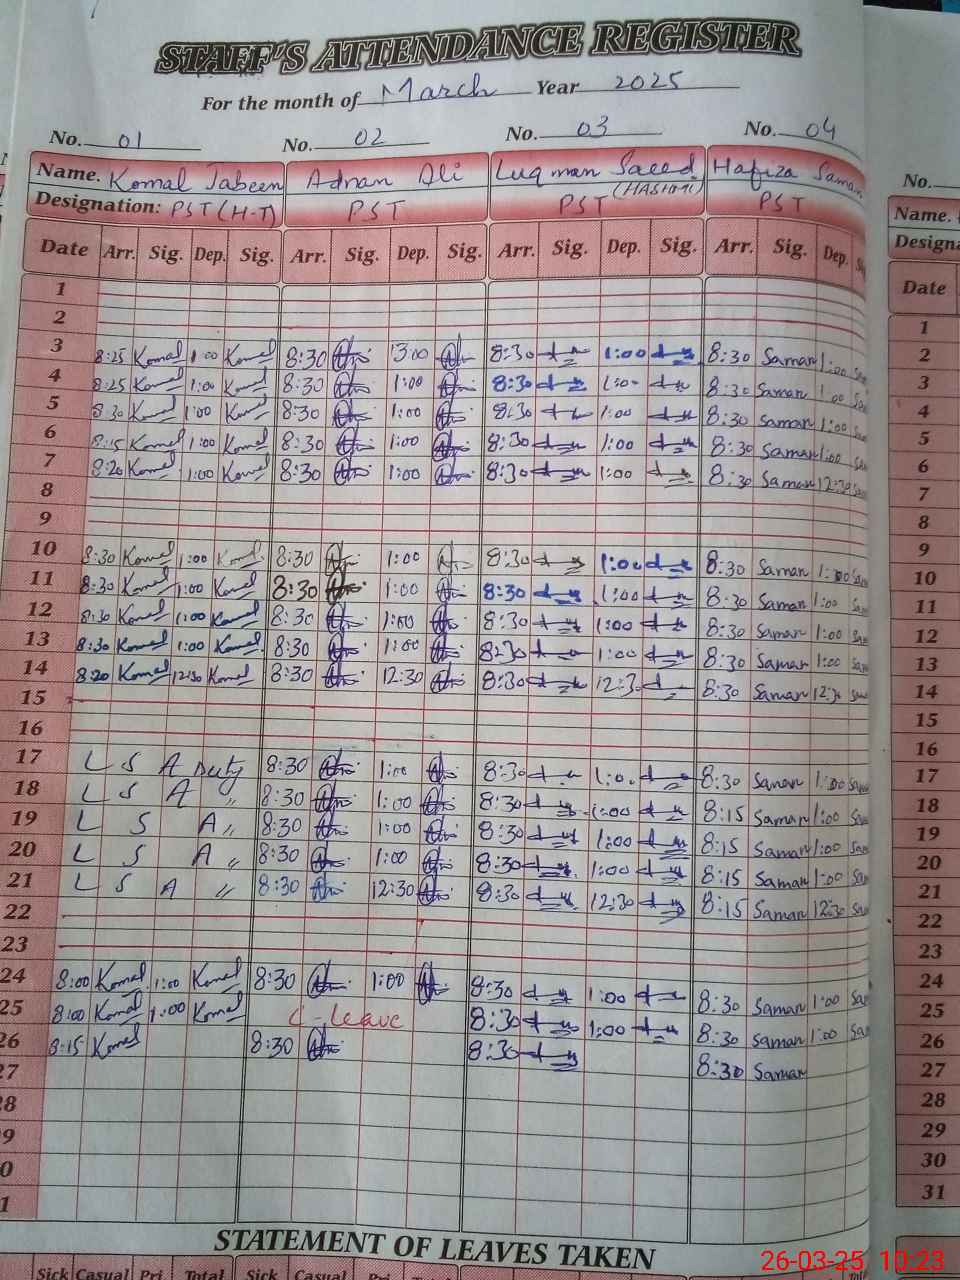 STAFF'S ATTENDANCE REGISTER
For the month of March Year 2025
No. 01 No. 02 No. 03 No. 04 No.
Name. Komal Jabeen Adnan Ali Luqman Saeed Hafiza Saman Name.
(HASHMI)
Designation: PST (H-T) PST PST PST Designa
Date Arr. Sig. Dep. Sig. Arr. Sig. Dep. Sig. Arr. Sig. Dep. Sig. Arr. Sig. Dep. Date
1 1
2 2
3 8:25 Komal 1:00 Komal 8:30 13:00 8:30 1:00 8:30 Saman 1:00 3
4 8:25 Komal 1:00 Komal 8:30 1:00 8:30 1:00 8:30 Saman 1:00 4
5 8:30 Komal 1:00 Komal 8:30 1:00 8:30 1:00 8:30 Saman 1:00 5
6 8:15 Komal 1:00 Komal 8:30 1:00 8:30 1:00 8:30 Saman 1:00 6
7 8:20 Komal 1:00 Komal 8:30 1:00 8:30 1:00 8:30 Saman 12:30 7
8 8
9 9
10 8:30 Komal 1:00 Komal 8:30 1:00 8:30 1:00 8:30 Saman 1:00 10
11 8:30 Komal 1:00 Komal 8:30 1:00 8:30 1:00 8:30 Saman 1:00 11
12 8:30 Komal 1:00 Komal 8:30 1:00 8:30 1:00 8:30 Saman 1:00 12
13 8:30 Komal 1:00 Komal 8:30 1:00 8:30 1:00 8:30 Saman 1:00 13
14 8:20 Komal 12:30 Komal 8:30 12:30 8:30 12:30 8:30 Saman 12:30 14
15 15
16 16
17 L S A Duty 8:30 1:00 8:30 1:00 8:30 Saman 1:00 17
18 L S A " 8:30 1:00 8:30 1:00 8:15 Saman 1:00 18
19 L S A " 8:30 1:00 8:30 1:00 8:15 Saman 1:00 19
20 L S A " 8:30 1:00 8:30 1:00 8:15 Saman 1:00 20
21 L S A " 8:30 12:30 8:30 12:30 8:15 Saman 12:30 21
22 22
23 23
24 8:00 Komal 1:00 Komal 8:30 1:00 8:30 1:00 8:30 Saman 1:00 24
25 8:00 Komal 1:00 Komal C-leave 8:30 1:00 8:30 Saman 1:00 25
26 8:15 Komal 8:30 8:30 8:30 Saman 26
27 27
28 28
9 29
0 30
1 31
STATEMENT OF LEAVES TAKEN
Sick Casual Pri Total Sick Casual
26-03-25 10:23